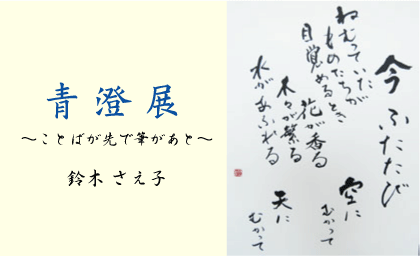 青澄展
～ことばが先で筆があと～
鈴木 さえ子
今 ふたたび
ねむっていたが
ものたちが
目覚めるとき
花が香る
木々が繁る
水があふれる
空に
むかって
天に
むかって